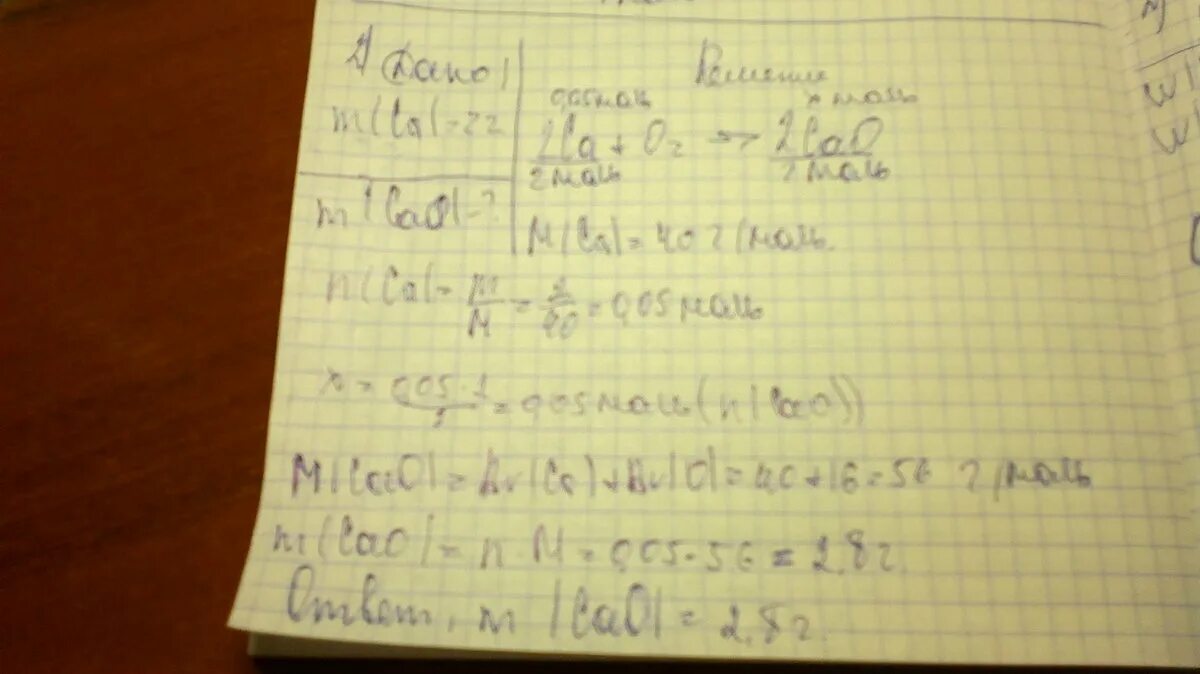 Дано: Решение
m(Ca)=2г
0,05моль x моль
2Ca + O₂ => 2CaO
2моль 2моль
m(CaO)-?
M(Ca)= 40 г/моль.
n(Ca)= m/M = 2/40 = 0,05 моль
x = 0,05·1/1 = 0,05моль (n(CaO))
M(CaO)= Ar(Ca)+Ar(O)=40+16=56 г/моль
m(CaO)= n·M = 0,05·56 = 2,8г.
Ответ: m(CaO)= 2,8г.